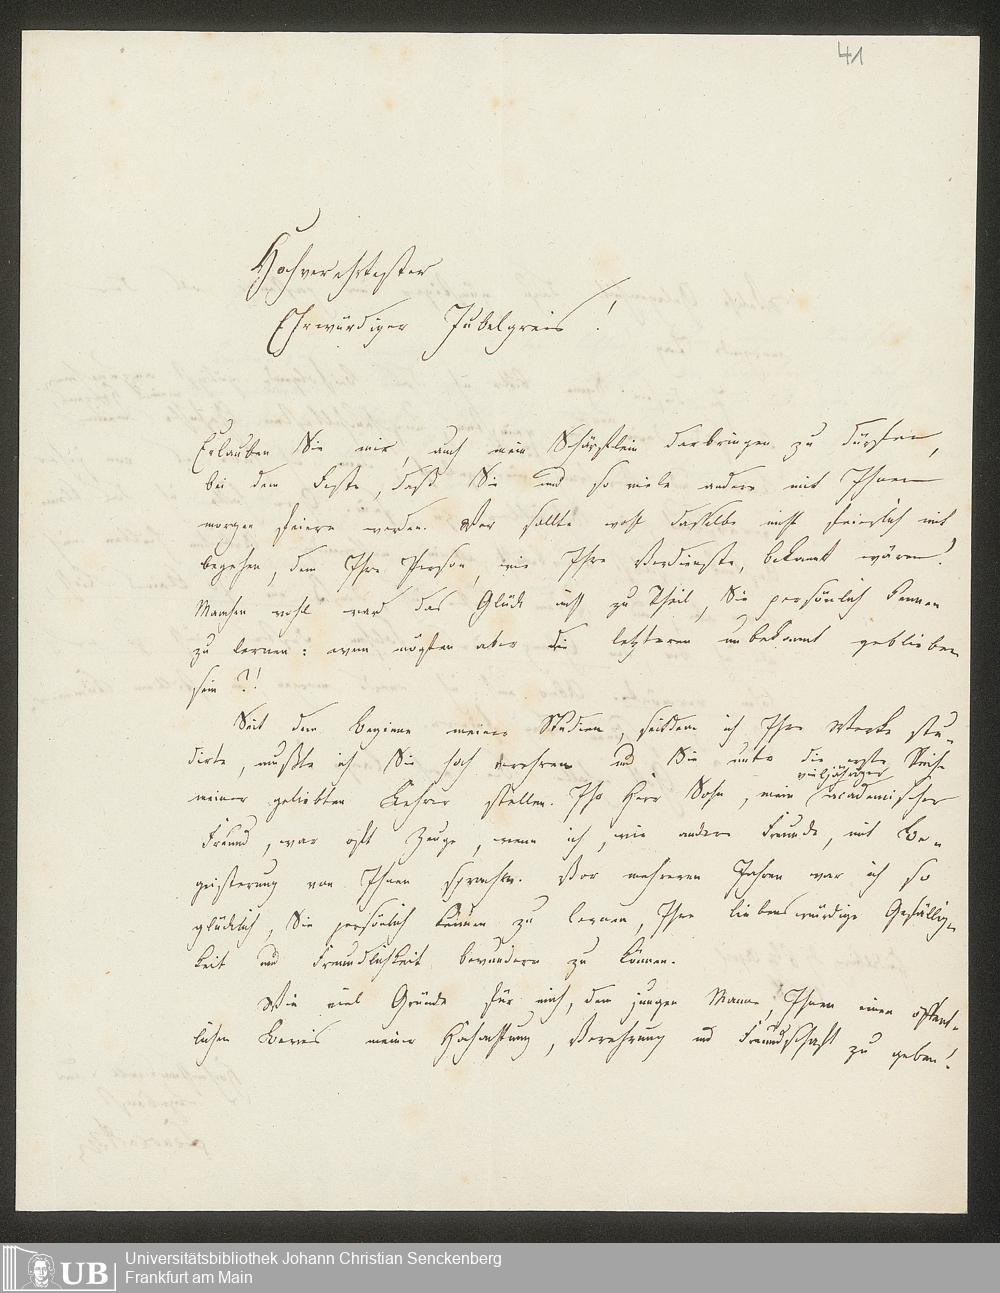 41
Hochverehrtester
Ehrwürdiger Jubelgreis!
Erlauben Sie mir, auch mein Schärflein darbringen zu dürfen,
bei dem Feste, daß Sie und so viele andere mit Ihnen
morgen feiern werden. Wer sollte wohl dasselbe nicht feierlich mit
begehen, dem Ihre Person, wie Ihre Verdienste, bekannt wären!
Manchen wohl war das Glück nicht zu Theil, Sie persönlich kennen
zu lernen: wem mögten aber die letzteren unbekannt geblieben
sein?!
Seit dem Beginne meiner Studien, seitdem ich Ihre Werke stu-
dirte, mußte ich Sie hoch verehren und Sie unter die erste Reihe
meiner geliebten Lehrer stellen. Ihr Herr Sohn, mein vieljähriger academischer
Freund, war oft Zeuge, wenn ich, wie andere Freunde, mit Be-
geisterung von Ihnen sprachen. Vor mehreren Jahren war ich so
glücklich, Sie persönlich kennen zu lernen, Ihre liebenswürdige Gefällig-
keit und Freundlichkeit bewundern zu können.
Wie viel Gründe für mich, dem jungen Manne, Ihnen einen öffent-
lichen Beweis meiner Hochachtung, Verehrung und Freundschaft zu geben!
UB Universitätsbibliothek Johann Christian Senckenberg
Frankfurt am Main